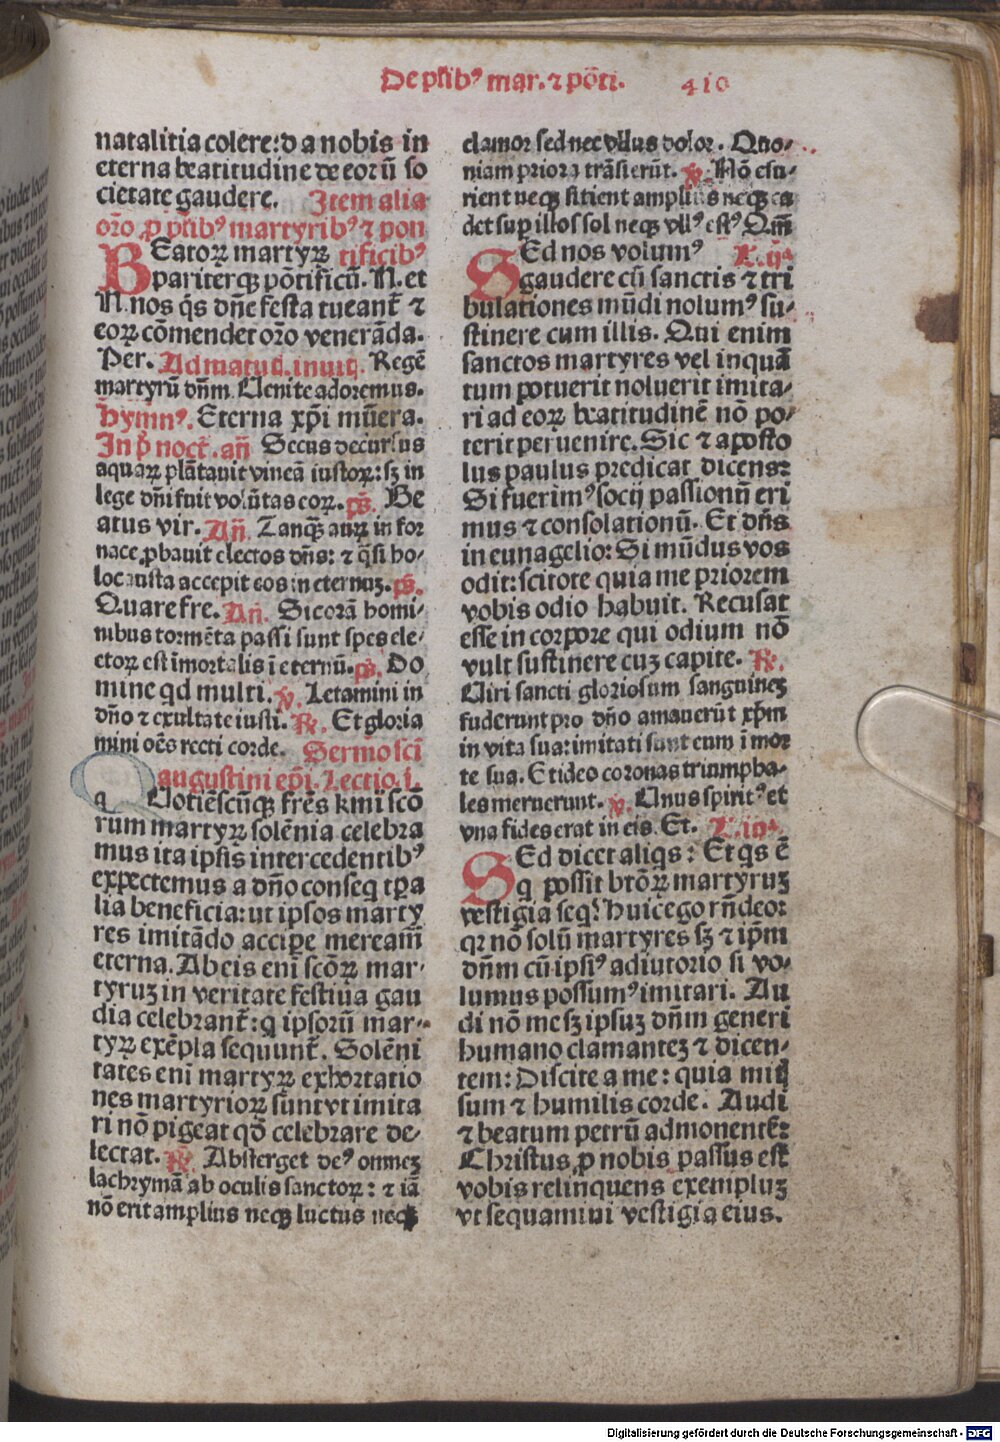 De pl̃ib⁹ mar. ⁊ põti. 410
natalitia colere: d a nobis in
eterna beatitudine de eorũ so
cietate gaudere. Item alia
oro ꝓ pl̃ib⁹ martyrib⁹ ⁊ pon
BEatoꝝ martyꝝ tificib⁹
pariterqꝫ põtificũ. N. et
N. nos q̃s dñe festa tueant̃ ⁊
eoꝝ cõmendet oro venerãda.
Per. Ad matuti. inuit. Regẽ
martyrũ dñm. Uenite adoremus.
hymn⁹. Eterna xp̃i mũera.
In p̃ noct̃. añ Secus decursus
aquaꝝ plãtauit vineã iustoꝝ: sꝫ in
lege dñi fuit volũtas eoꝝ. ps̃. Be
atus vir. Añ. Tanqꝫ auꝝ in for
nace ꝓbauit electos dñs: ⁊ q̃si ho⸗
locausta accepit eos in eternuꝫ. ps̃.
Quare fre. Añ. Si corã homi⸗
nibus tormẽta passi sunt spes ele⸗
ctoꝝ est ĩmortalis ĩ eternũ. ps̃. Do
mine qd multi. ꝟ. Letamini in
dño ⁊ exultate iusti. ℞. Et gloria
mini oẽs recti corde. Sermo sci
augustini ep̃i. Lectio. i.
q Uotiẽscũqꝫ frẽs kmi scõ
rum martyꝝ solẽnia celebra
mus ita ipsis intercedentib⁹
expectemus a dño conseq tp̃a
lia beneficia: ut ipsos marty
res imitãdo accipe meream̃
eterna. Ab eis eni scõꝝ mar⸗
tyruꝫ in veritate festiua gau
dia celebrant̃: q ipsorũ mar⸗
tyꝝ exẽpla sequunt̃. Solẽni
tates eni martyꝝ exhortatio
nes martyrioꝝ sunt vt imita
ri nõ pigeat qd̃ celebrare de⸗
lectat. ℞. Absterget de⁹ omneꝫ
lachrymã ab oculis sanctoꝝ: ⁊ iã
nõ erit amplius neqꝫ luctus neqꝫ
clamor sed nec vllus dolor. Quo⸗
niam priora trãsierũt. ꝟ. Nõ esu⸗
rient neqꝫ sitient amplius neqꝫ ca
det sup illos sol neqꝫ vll⁹ est⁹. Qm̃
SEd nos volum⁹ L. ij.
gaudere cũ sanctis ⁊ tri
bulationes mũdi nolum⁹ su⸗
stinere cum illis. Qui enim
sanctos martyres vel inquã
tum potuerit noluerit imita⸗
ri ad eoꝝ beatitudinẽ nõ po⸗
terit peruenire. Sic ⁊ aposto
lus paulus predicat dicens:
Si fuerim⁹ socij passionũ eri
mus ⁊ consolationũ. Et dñs
in eunagelio: Si mũdus vos
odit: scitote quia me priorem
vobis odio habuit. Recusat
esse in corpore qui odium nõ
vult sustinere cuꝫ capite. ℞.
Uiri sancti gloriosum sanguineꝫ
fuderunt pro dño amauerũt xp̃m
in vita sua: imitati sunt eum ĩ mor
te sua. Et ideo coronas triumpha⸗
les meruerunt. ꝟ. Unus spirit⁹ et
vna fides erat in eis. Et. L. iij.
SEd dicet aliqs: Et qs ẽ
q possit btõꝝ martyruꝫ
vestigia seq? Huic ego rñdeo:
qꝛ nõ solũ martyres sꝫ ⁊ ip̃m
dñm cũ ipsi⁹ adiutorio si vo⸗
lumus possum⁹ imitari. Au
di nõ me sꝫ ipsuꝫ dñm generi
humano clamanteꝫ ⁊ dicen⸗
tem: Discite a me: quia mitis
sum ⁊ humilis corde. Audi
⁊ beatum petrũ admonentẽ:
Christus ꝓ nobis passus est
vobis relinquens exempluꝫ
vt sequamini vestigia eius.
Digitalisierung gefördert durch die Deutsche Forschungsgemeinschaft - DFG